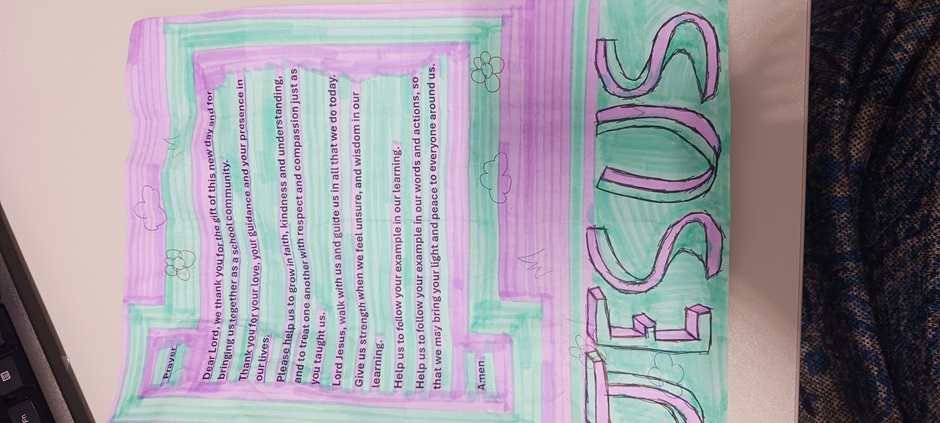 Prayer
Dear Lord, we thank you for the gift of this new day and for
bringing us together as a school community.
Thank you for your love, your guidance and your presence in
our lives.
Please help us to grow in faith, kindness and understanding,
and to treat one another with respect and compassion just as
you taught us.
Lord Jesus, walk with us and guide us in all that we do today.
Give us strength when we feel unsure, and wisdom in our
learning.
Help us to follow your example in our learning.
Help us to follow your example in our words and actions, so
that we may bring your light and peace to everyone around us.
Amen
JESUS